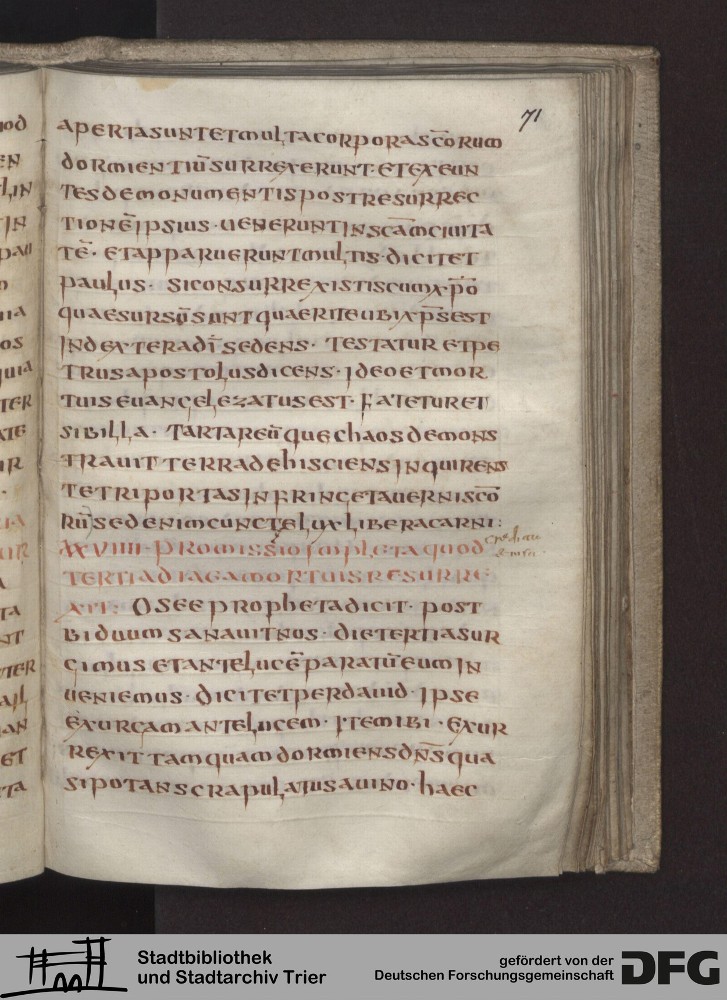 71
APERTASUNTETMULTACORPORASC̄ORUM
DORMIENTIŪSURREXERUNT·ETEXEUN
TESDEMONUMENTISPOSTRESURREC
TIONĒIPSIUS·UENERUNTINSCĀMCIUITA
TĒ·ETAPPARUERUNTMULTIS·DICITET
PAULUS·SICONSURREXISTISCUMXP̄O
QUAESURSŪSUNTQUAERITEUBIXP̄SEST
INDEXTERADĪSEDENS·TESTATURETPE
TRUSAPOSTOLUSDICENS·IDEOETMOR
TUISEUANGELEZATUSEST·FATETURET
SIBILLA·TARTAREŪQUECHAOSDEMONS
TRAUITTERRADEHISCIENSINQUIRENS
TETRIPORTASINFRINGETAUERNISC̄O
RŪSEDENIMCUNCTELUXLIBERACARNI:
XXVIIII·PROMISSIOIMPLETAQUOD
TERTIADIAGAMORTUISRESURRE
XIT:OSEEPROPHETADICIT·POST
BIDUUMSANAUITNOS·DIETERTIASUR
GIMUSETANTELUCĒPARATŪEUMIN
UENIEMUS·DICITETPERDAUID·IPSE
EXURGAMANTELUCEM·ITEMIBI·EXUR
REXITTAMQUAMDORMIENSDN̄SQUA
SIPOTANSCRAPULATUSAUINO·HAEC
Stadtbibliothek
und Stadtarchiv Trier
gefördert von der
Deutschen Forschungsgemeinschaft
DFG